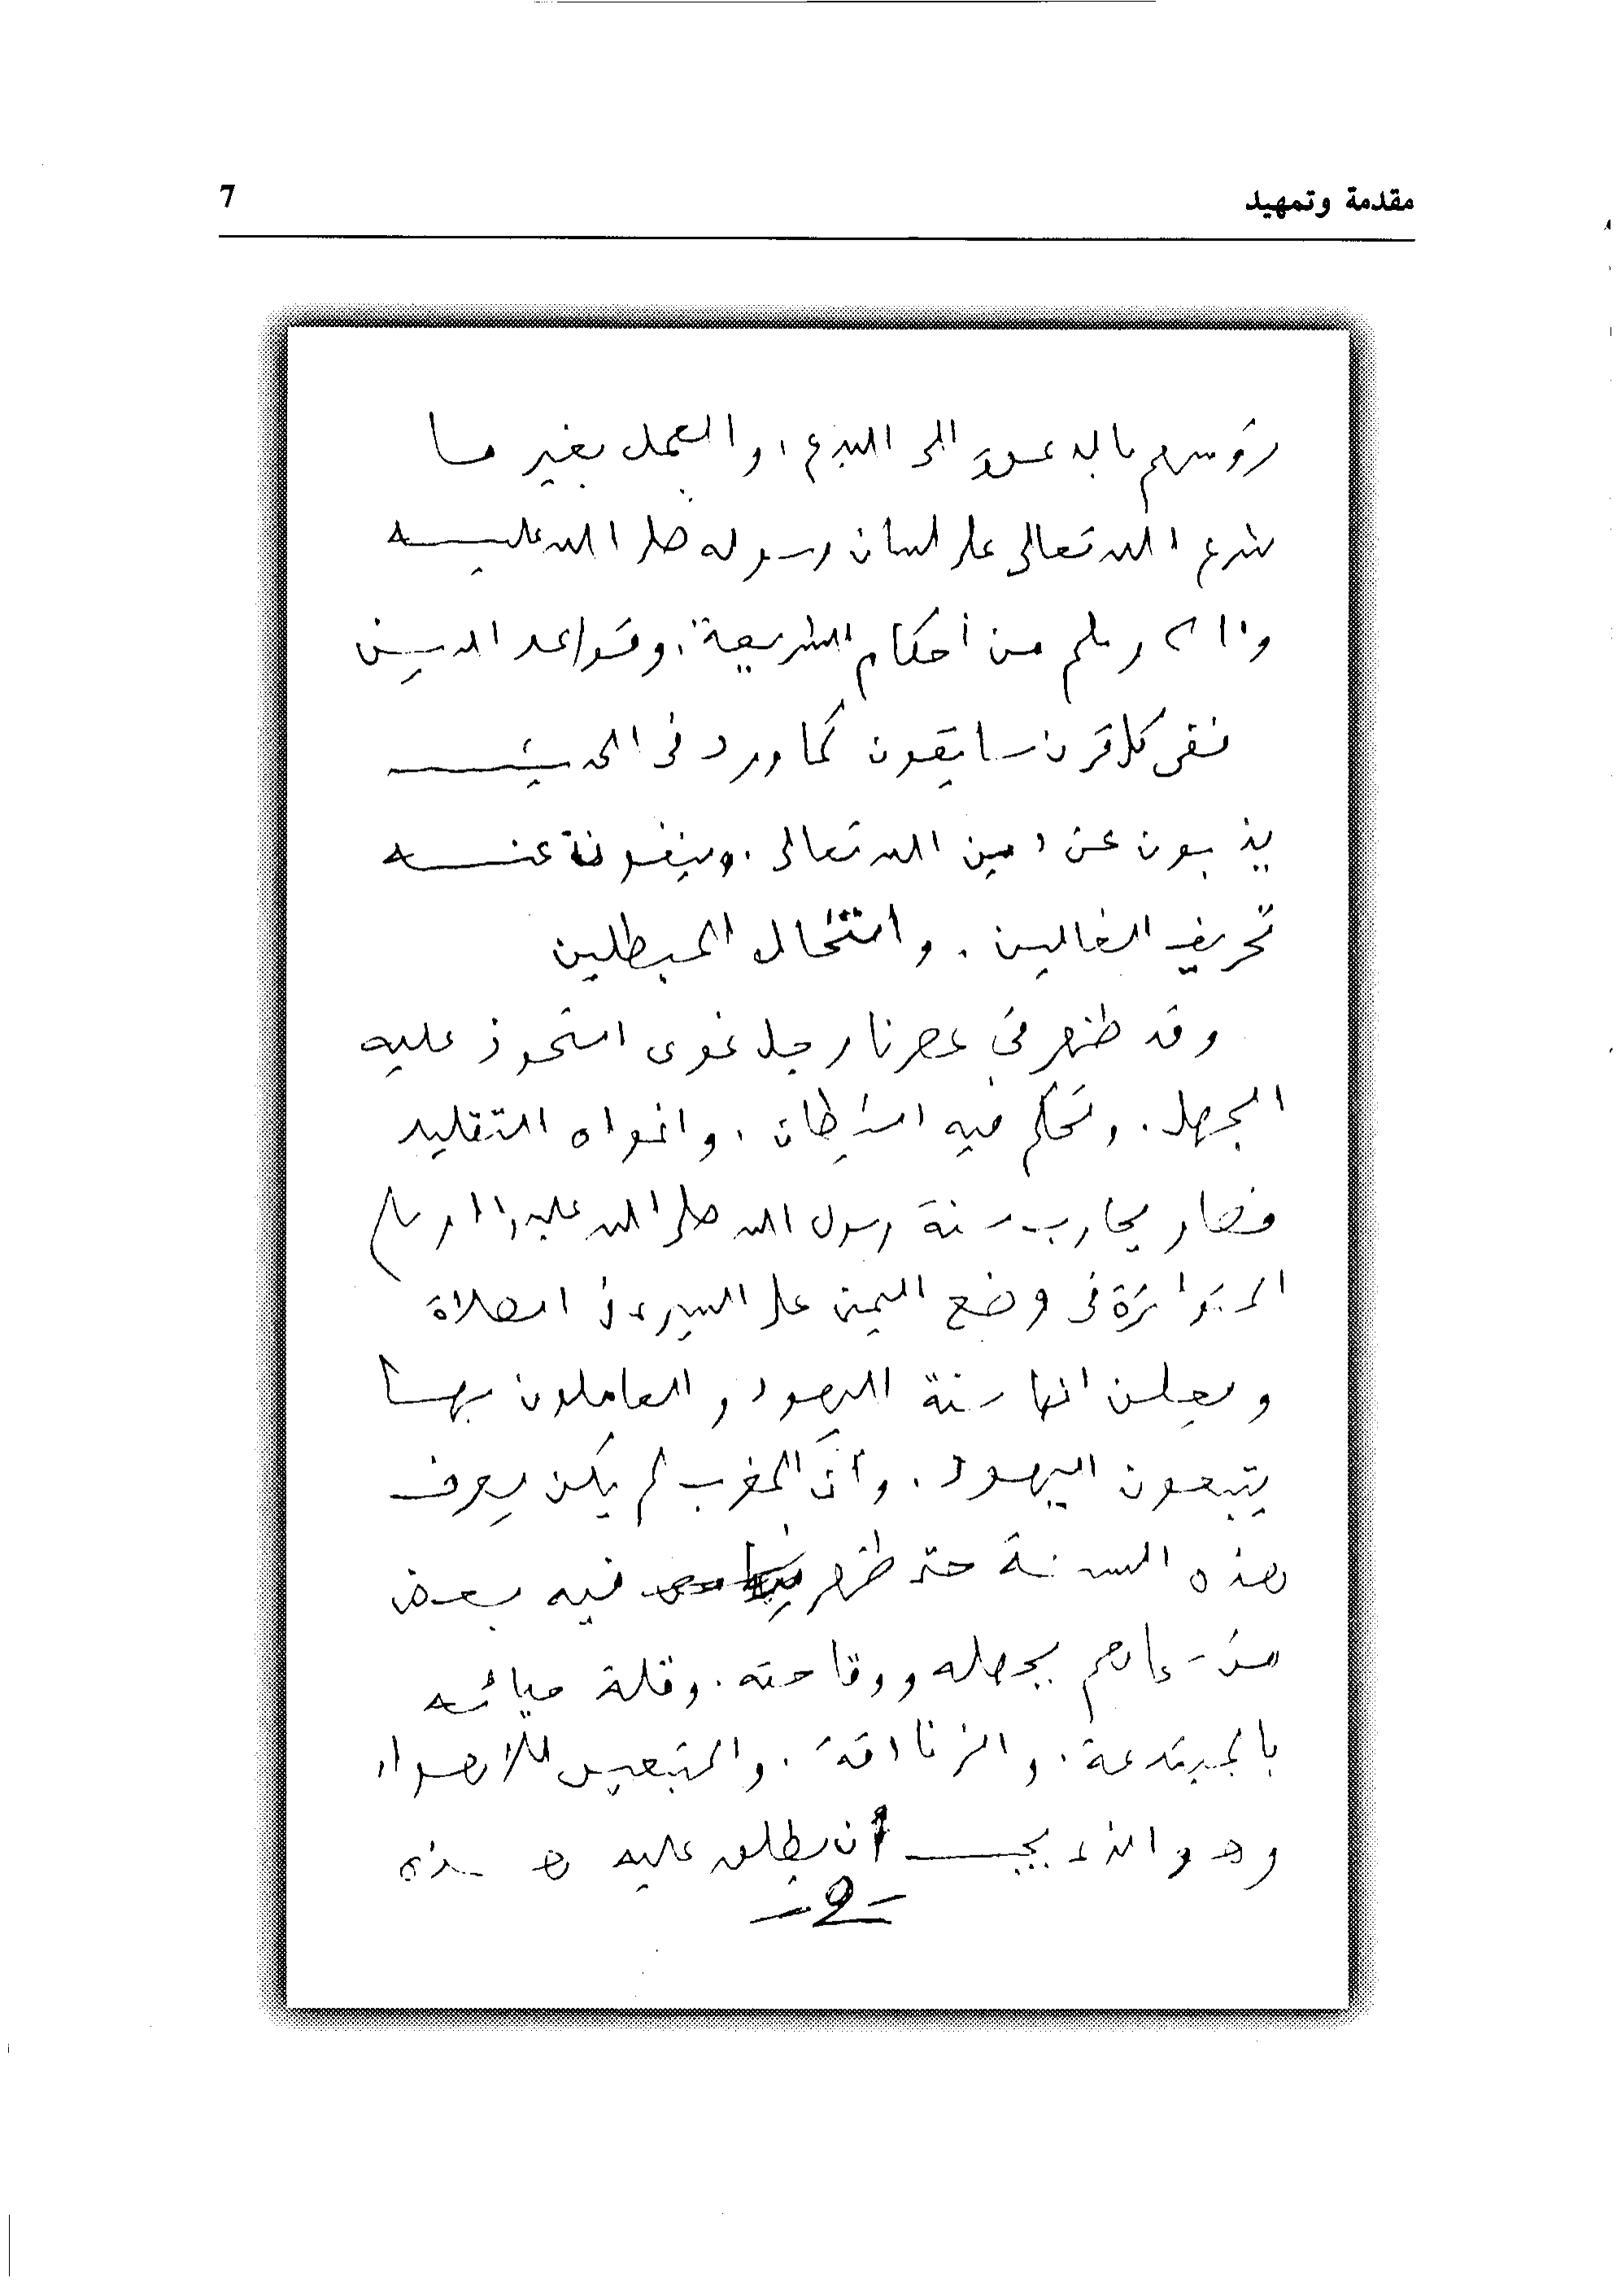 مقدمة وتمهيد
7
رؤسهم بالدعوة الى البدع، والعمل بغير ما
شرع الله تعالى على لسان رسوله صلى الله عليه
وآله وسلم من أحكام الشريعة، وقواعد الدين
ففى كل قرن سابقون كما ورد فى الحديث
يذبون عن دين الله تعالى. وينفون عنه
تحريف الغالين. وانتحال المبطلين
وقد ظهر فى عصرنا رجل غوى استحوذ عليه
الجهل. وتحكم فيه الشيطان. واغواه التقليد
فصار يحارب سنة رسول الله صلى الله عليه وآله وسلم
المتواترة فى وضع اليمين على اليسرى فى الصلاة
ويعلن انها سنة اليهود والعاملون بها
يتبعون اليهود. وأن المغرب لم يكن يعرف
هذه السنة حتى ظهر فيه بعض
من سماهم بجهله ووقاحته. وقلة حيائه
بالمبتدعة. والزنادقة. والمتبعين للاهواء
وهو الذى يجب أن يطلق عليه هذه
-2-